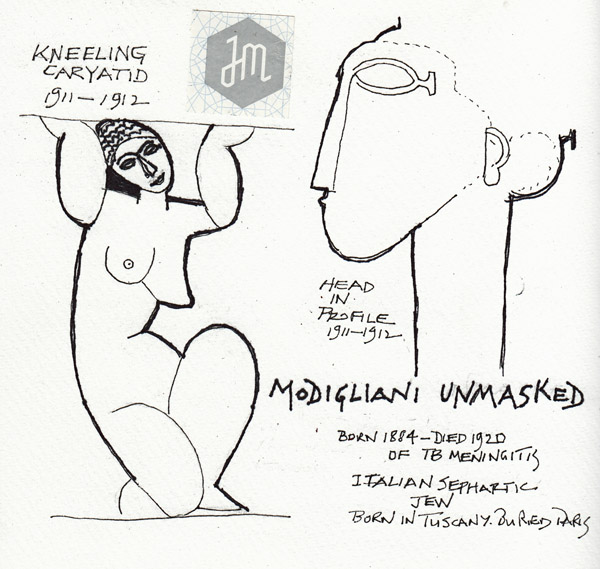 KNEELING
CARYATID
1911-1912
JM
HEAD
IN
PROFILE
1911-1912
MODIGLIANI UNMASKED
BORN 1884-DIED 1920
OF TB MENINGITIS
ITALIAN SEPHARTIC
JEW
BORN IN TUSCANY. BURIED PARIS